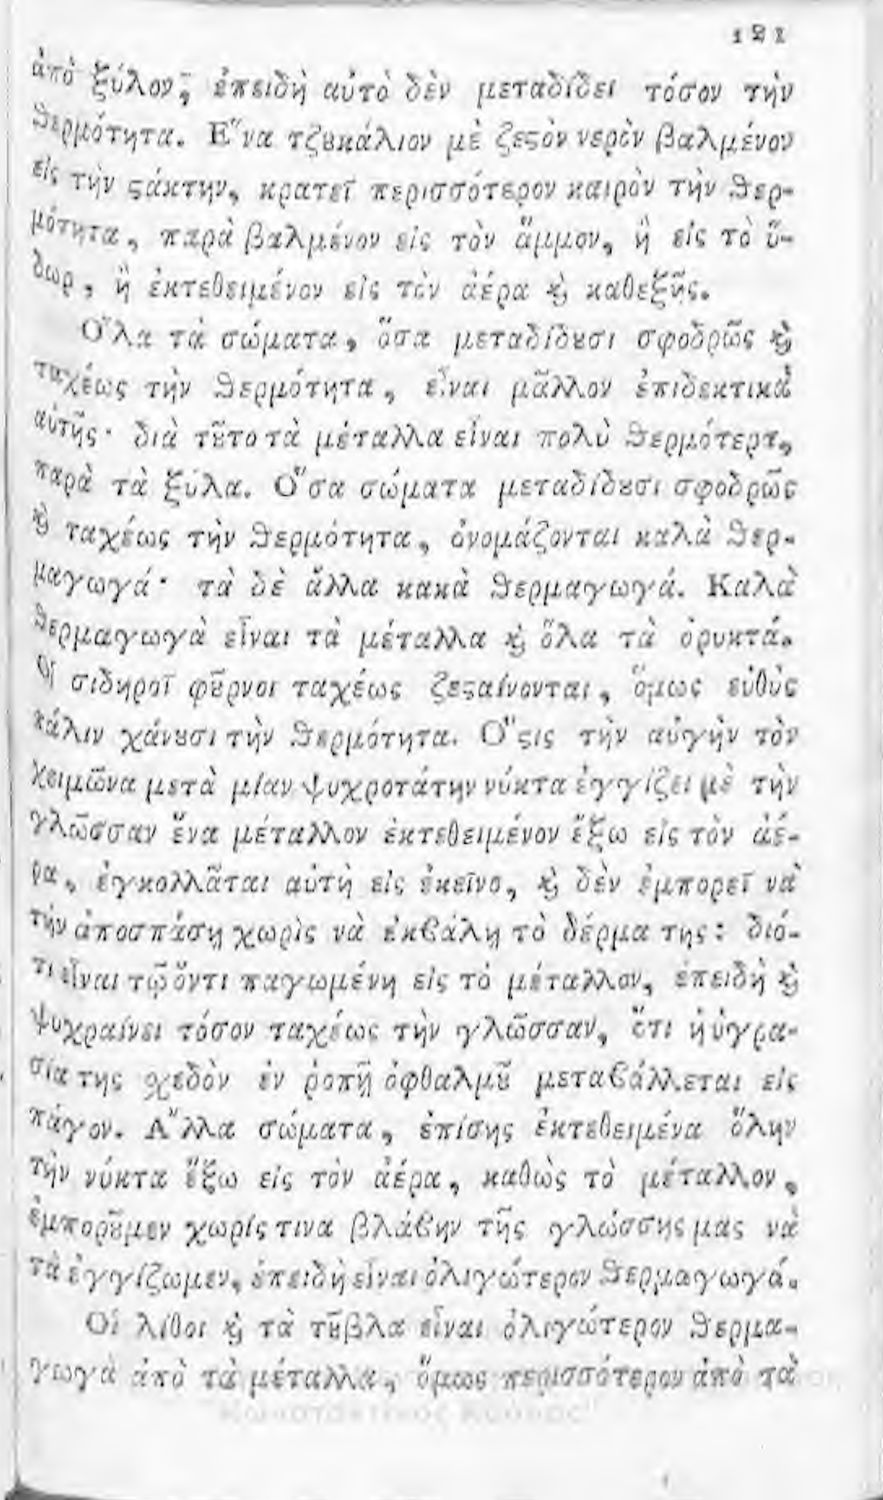 121
ἀπὸ ξύλον, ἐπειδὴ αὐτὸ δὲν μεταδίδει τόσον τὴν
ϑερμότητα. Ε῞να τζȣκάλιον μὲ ζεϛὸν νερὸν βαλμένον
εἰς τὴν ϛάκτην, κρατεῖ περισσότερον καιρὸν τὴν ϑερ-
μότητα, παρὰ βαλμένον εἰς τὸν ἄμμον, ἢ εἰς τὸ ὕ-
δωρ, ἢ ἐκτεθειμένον εἰς τὸν ἀέρα ϗ̀ καθεξῆς.
Ο῞λα τὰ σώματα, ὅσα μεταδίδȣσι σφοδρῶς ϗ̀
ταχέως τὴν ϑερμότητα, εἶναι μᾶλλον ἐπιδεκτικὰ
αὐτῆς· διὰ τȣ͂το τὰ μέταλλα εἶναι πολὺ ϑερμότερα,
παρὰ τὰ ξύλα. Ο῞σα σώματα μεταδίδȣσι σφοδρῶς
ϗ̀ ταχέως τὴν ϑερμότητα, ὀνομάζονται καλὰ ϑερ-
μαγωγά· τὰ δὲ ἄλλα κακὰ ϑερμαγωγά. Καλὰ
ϑερμαγωγὰ εἶναι τὰ μέταλλα ϗ̀ ὅλα τὰ ὀρυκτά.
Οἱ σιδηροῖ φȣ͂ρνοι ταχέως ζεϛαίνονται, ὅμως εὐθὺς
πάλιν χάνȣσι τὴν ϑερμότητα. Ο῞ϛις τὴν αὐγὴν τὸν
χειμῶνα μετὰ μίαν ψυχροτάτην νύκτα ἐγγίζει μὲ τὴν
γλῶσσαν ἕνα μέταλλον ἐκτεθειμένον ἔξω εἰς τὸν ἀέ-
ρα, ἐγκολλᾶται αὐτὴ εἰς ἐκεῖνο, ϗ̀ δὲν ἐμπορεῖ νὰ
τὴν ἀποσπάσῃ χωρὶς νὰ ἐκϐάλῃ τὸ δέρμα της: διό-
τι εἶναι τῷ ὄντι παγωμένη εἰς τὸ μέταλλον, ἐπειδὴ ϗ̀
ψυχραίνει τόσον ταχέως τὴν γλῶσσαν, ὅτι ἡ ὑγρα-
σία της σχεδὸν ἐν ῥοπῇ ὀφθαλμȣ͂ μεταϐάλλεται εἰς
πάγον. Α῎λλα σώματα, ἐπίσης ἐκτεθειμένα ὅλην
τὴν νύκτα ἔξω εἰς τὸν ἀέρα, καθὼς τὸ μέταλλον,
ἐμπορȣ͂μεν χωρίς τινα βλάϐην τῆς γλώσσης μας νὰ
τὰ ἐγγίζωμεν, ἐπειδὴ εἶναι ὀλιγώτερον ϑερμαγωγά.
Οἱ λίθοι ϗ̀ τὰ τȣ͂βλα εἶναι ὀλιγώτερον ϑερμα-
γωγὰ ἀπὸ τὰ μέταλλα, ὅμως περισσότερον ἀπὸ τὰ